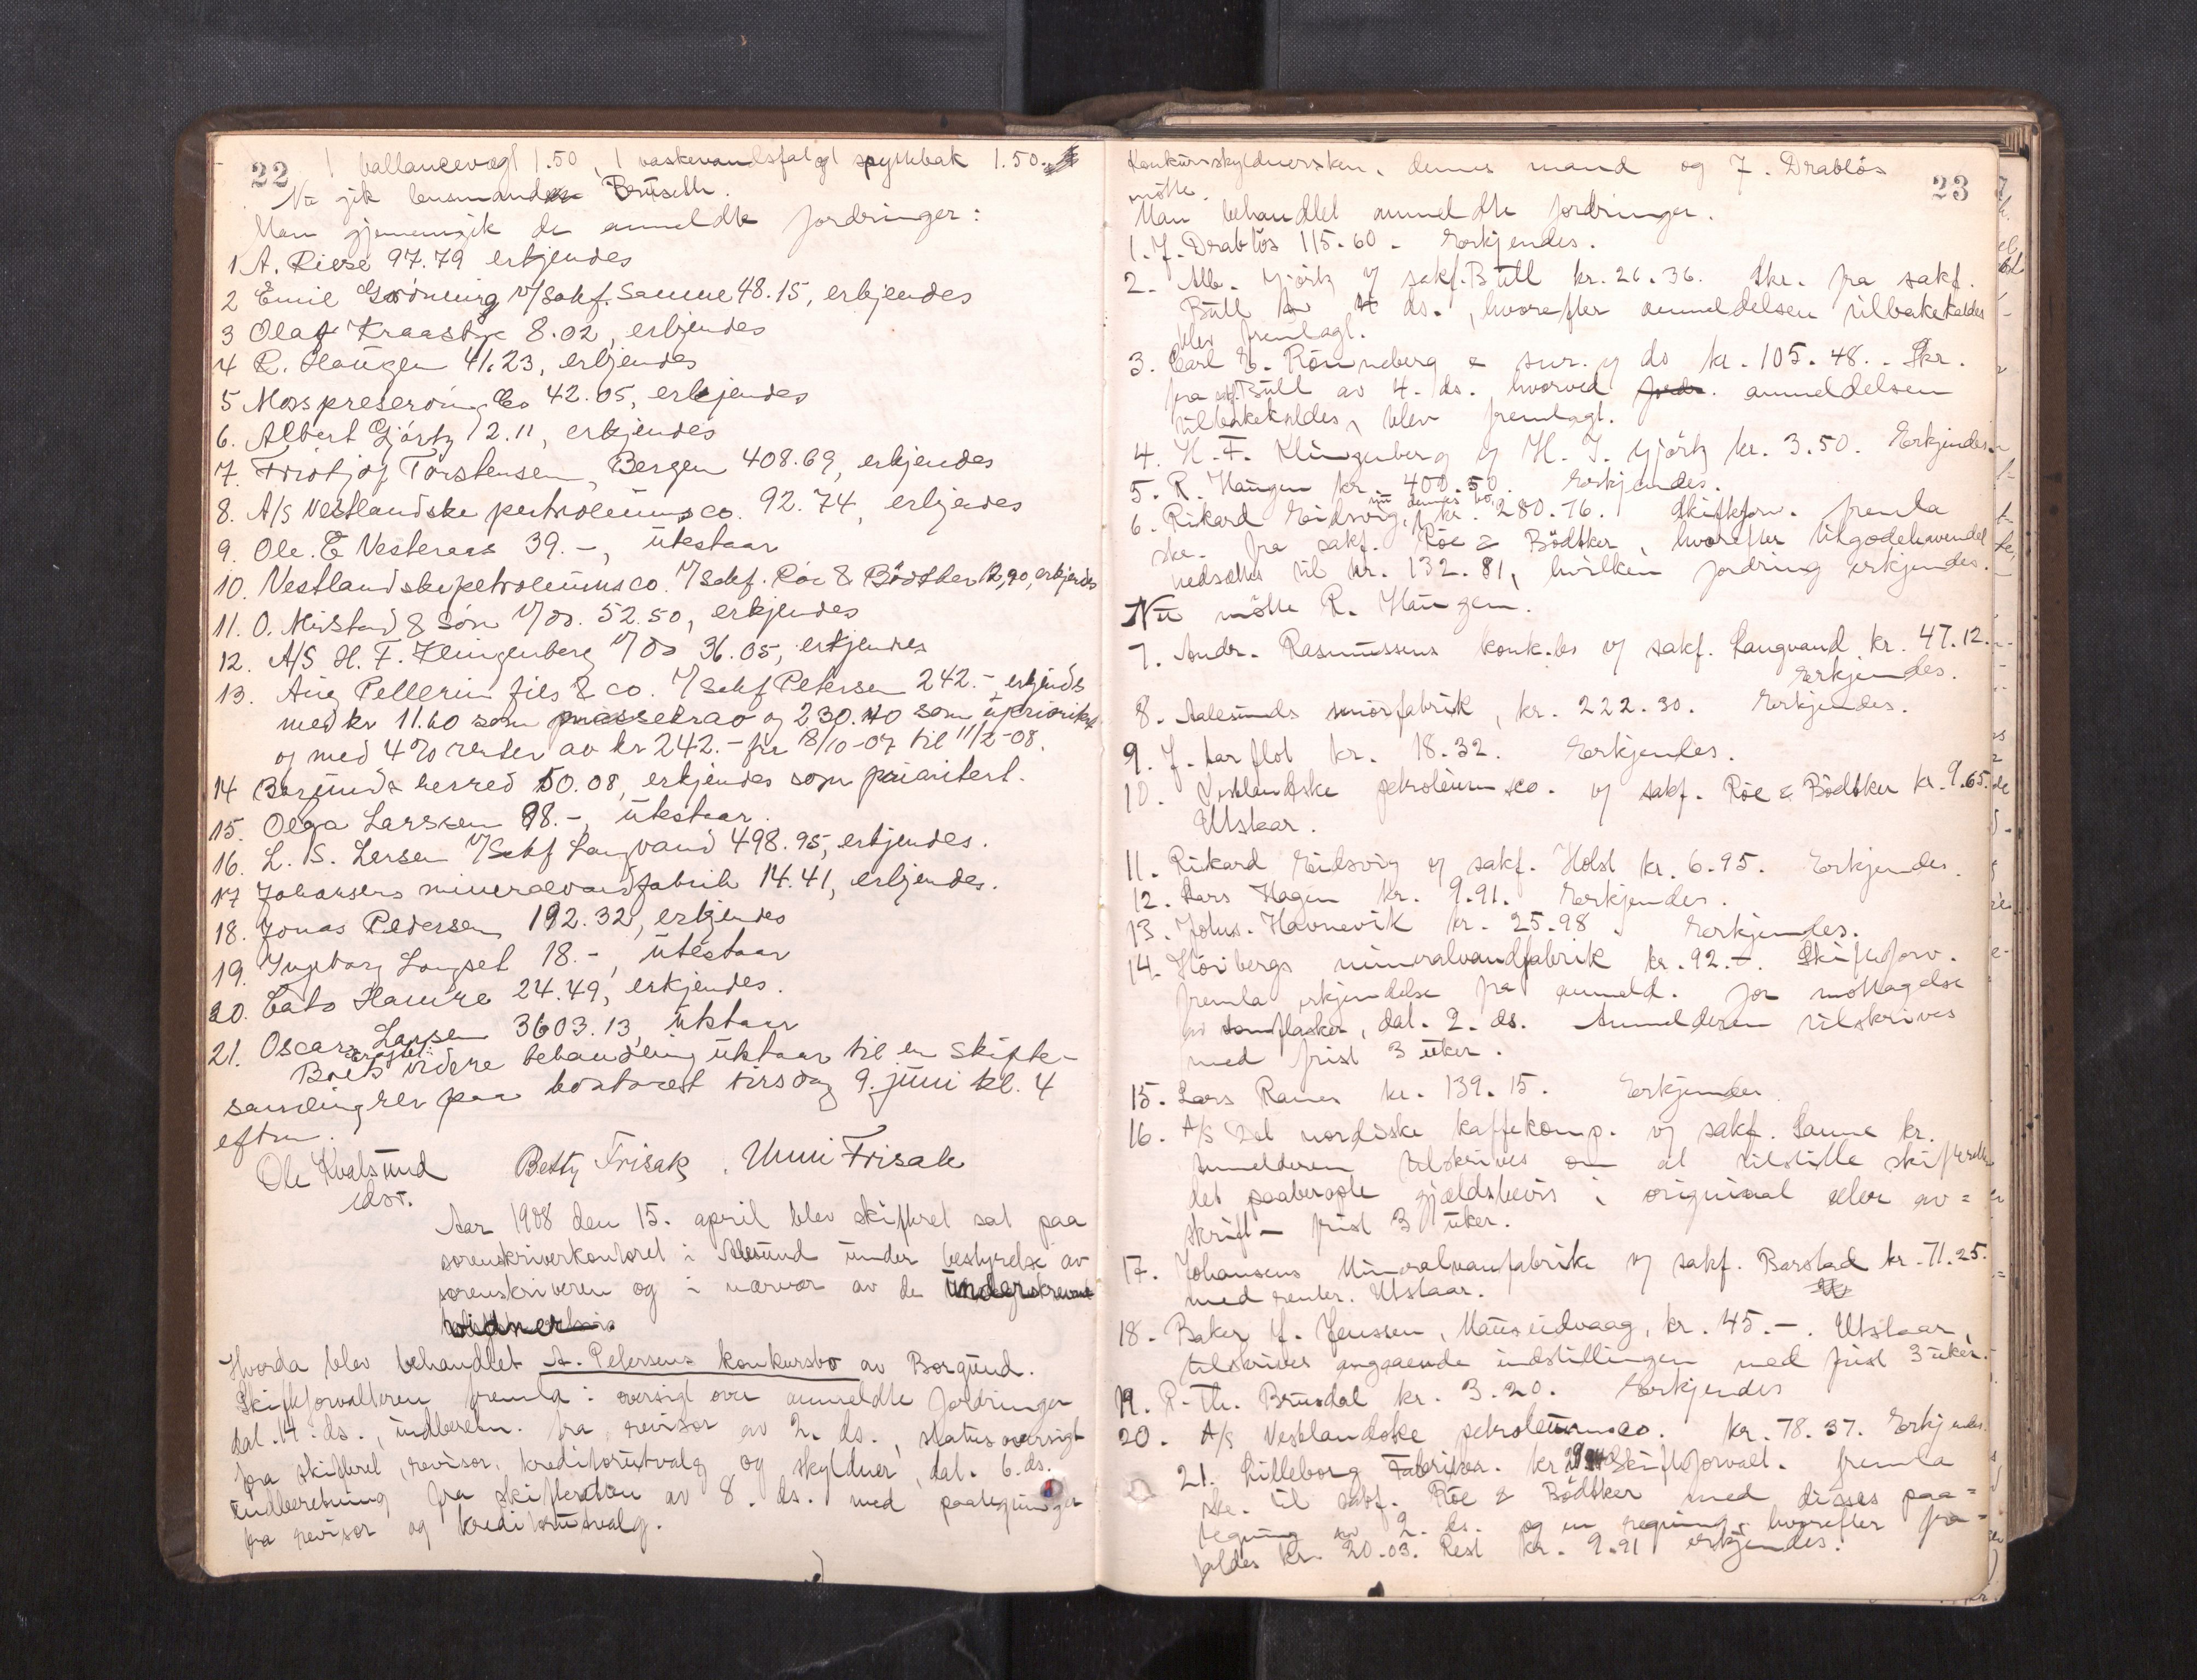 22
1 ballancevegt 1.50, 1 vaskevandsfat og spyttebak 1.50.
Nu gik lensmanden Brüseth.
Man gjennemgik de anmeldte fordringer:
1 A. Riese 97.79 erkjendes
2 Emil Grönning v/sakf. Sanne 48.15, erkjendes
3 Olaf Kraabye 8.02, erkjendes
4 R. Haugen 41.23, erkjendes
5 Moss preserving Co 42.05, erkjendes
6. Albert Gjörtz 12.11, erkjendes
7. Fridtjof Torstensen, Bergen 408.69, erkjendes
8. A/S Vestlandske petroleumsco. 92.74, erkjendes
9. Ole. E Vesteraas 39.-, utestaar
10. Vestlandske petroleumsco. v/sakf. Röe & Bödtker 12,90, erkjendes
11. O. Mustad & Sön v/Do. 52.50, erkjendes
12. A/S H. F. Klingenberg v/Do 36.05, erkjendes
13. Aug Pellerin fils & co. v/sakf Petersen 242.-, erkjends
med kr 11.60 som massekrav og 230.40 som uprioritert
og med 4% renter av kr 242.- fra 18/10-07 til 11/2-08.
14 Borgunds herred 50.08, erkjendes som prioritert.
15. Olga Larssen 98.-, utestaar.
16. L. S. Larsen v/Sakf Langvand 498.95, erkjendes.
17 Johansens mineralvandfabrik 14.41, erkjendes.
18. Jonas Pedersen 192.32, erkjendes
19. Ingeborg Longset 18.-, utestaar
20. Cato Hamre 24.49, erkjendes.
21. Oscar Larsen 3603.13, utstaar
Boets videre behandling utstaar til en skifte-
samling her paa kontoret tirsdag 9. juni kl. 4
eftm.
Ole Kvalsund Betty Frisak. Unni Frisak
cdst.
Aar 1908 den 15. april blev skifteret sat paa
sorenskriverkontoret i Aalesund under bestyrelse av
sorenskriveren og i nærvær av de underskrevne
vidner.
Hvorda blev behandlet A. Petersens konkursbo av Borgund.
Skifteforvalteren fremla: oversigt over anmeldte fordringer
dat. 14. ds., indberetn. fra revisor av 2. ds., statusoversigt
fra skifteret, revisor, kreditorutvalg og skyldner, dat. 6. ds.
indberetning fra skifteretten av 8. ds. med paategninger
fra revisor og kreditorutvalg.
23
Konkursskyldnersken, dennes mand og J. Drabløs
mötte.
Man behandlet anmeldte fordringer.
1. J. Drabløs 115.60. Erkjendes.
2. Alb. Gjörtz v/ sakf. Bull kr. 26.36. Skr. fra sakf.
Bull av 4 ds., hvorefter anmeldelsen tilbakekaldes
blev fremlagt.
3. Carl E. Rönneberg & sön. v/ do kr. 105.48. Skr.
fra sakf. Bull av 4. ds. hvorved fordr. anmeldelsen
tilbakekaldes, blev fremlagt.
4. H. F. Klingenberg v/ H. J. Gjörtz kr. 3.50. Erkjendes.
5. R. Haugen kr. 400.50. Erkjendes.
6. Rikard Eidsvig, nu dennes bo, kr. 280.76. Skifteforv. fremla
skr. fra sakf. Röe & Bödtker, hvorefter tilgodehavendet
nedsættes til kr. 132.81, hvilken fordring erkjendes.
Nu mötte R. Haugen.
7. Andr. Rasmussens konk.bo v/ sakf. Langvand kr. 47.12.
Erkjendes.
8. Aalesunds smörfabrik, kr. 222.30. Erkjendes.
9. J. Aarflot kr. 18.32. Erkjendes.
10. Vestlandske petroleumsco. v/ sakf. Röe & Bödtker kr. 9.65.
Utstaar.
11. Rikard Eidsvig v/ sakf. Holst kr. 6.95. Erkjendes.
12. Lars Hagen kr. 9.91. Erkjendes.
13. Johs. Havnevik kr. 25.98. Erkjendes.
14. Höibergs mineralvandfabrik kr. 92.-. Skifteforv.
fremla erkjendelse fra anmeld. for mottagelse
av tomflasker, dat. 2. ds. Anmelderen tilskrives
med frist 3 uker.
15. Lars Ranes kr. 139.15. Erkjendes
16. A/S Det nordiske kaffekomp. v/ sakf. Sanne kr.
Anmelderen tilskrives om at tilstille skifteretten
det paaberopte gjældsbevis i original eller av=
skrift - frist 3 uker.
17. Johansens Mineralvanfabrik v/ sakf. Barstad kr. 71.25.
med renter. Utstaar.
18. Baker J. Jenssen, Mausundvaag, kr. 45.-. Utstaar,
tilskrives angaaende indstillingen med frist 3 uker.
19. R. Th. Brusdal kr. 3.20. Erkjendes
20. A/S Vestlandske petroleumsco. kr. 78.37. Erkjendes.
21. Lilleborg Fabriker. kr 29.94 Skifteforvalt. fremla
skr. til sakf. Röe & Bödtker med disses paa=
tegning av 2. ds. og en regning, hvorefter fra=
faldes kr. 20.03. Rest kr. 9.91 erkjendes.